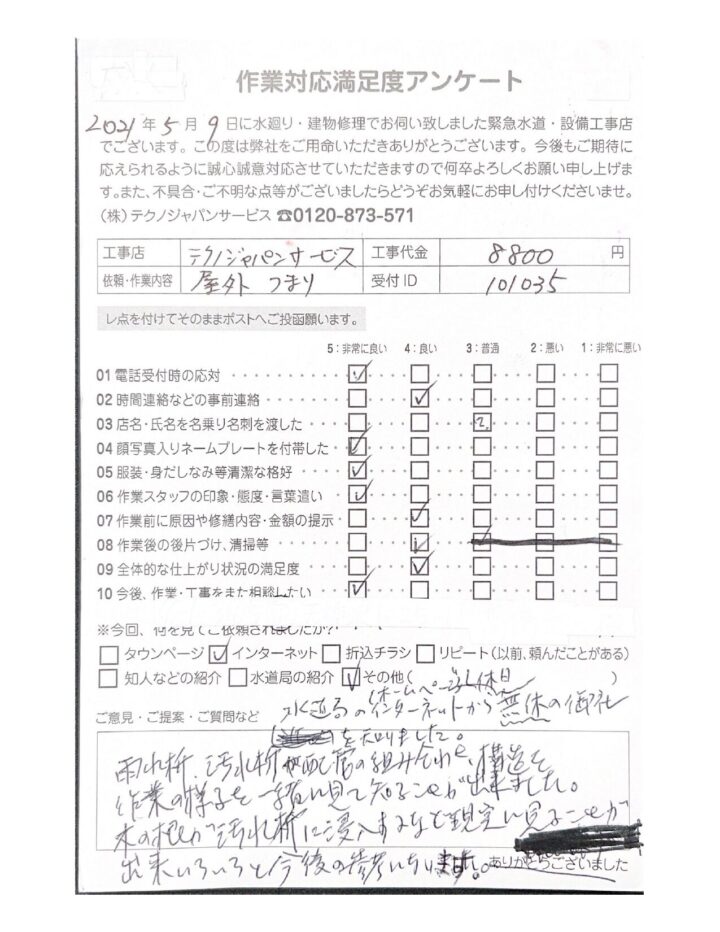 作業対応満足度アンケート
2021年5月9日に水廻り・建物修理でお伺い致しました緊急水道・設備工事店
でございます。この度は弊社をご用命いただきありがとうございます。今後もご期待に
応えられるように誠心誠意対応させていただきますので何卒よろしくお願い申し上げま
す。また、不具合・ご不明な点等がございましたらどうぞお気軽にお申し付けくださいませ。
(株)テクノジャパンサービス ☎0120-873-571
工事店 テクノジャパンサービス 工事代金 8800 円
依頼・作業内容 屋外 つまり 受付ID 101035
レ点を付けてそのままポストへご投函願います。
5:非常に良い 4:良い 3:普通 2:悪い 1:非常に悪い
01 電話受付時の応対
02 時間連絡などの事前連絡
03 店名・氏名を名乗り名刺を渡した ?
04 顔写真入りネームプレートを付帯した
05 服装・身だしなみ等清潔な格好
06 作業スタッフの印象・態度・言葉遣い
07 作業前に原因や修繕内容・金額の提示
08 作業後の後片づけ、清掃等
09 全体的な仕上がり状況の満足度
10 今後、作業・工事をまた相談したい
※今回、何を見てご依頼されましたか?
タウンページ インターネット 折込チラシ リピート(以前、頼んだことがある)
知人などの紹介 水道局の紹介 その他( )
(ホームページ) 休日
ご意見・ご提案・ご質問など 水道局のインターネットから無休の御社
を知りました。
雨水桝、汚水桝や配管の組み合わせ、構造を
作業の様子を一緒に見て知ることが出来ました。
木の根が汚水桝に浸入するなど現実に見ることが
出来いろいろと今後の参考になります。ありがとうございました